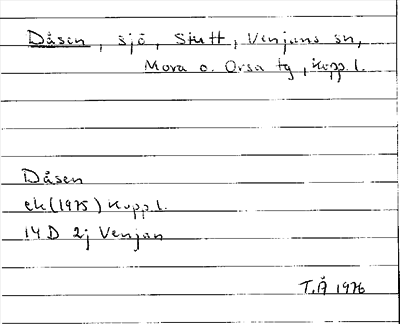 Dåsen, sjö, Stutt, Venjans sn,
Mora o. Orsa tg, Kopp. l.
Dåsen
ek (1975) Kopp. l.
14 D 2j Venjan
T.Å 1976